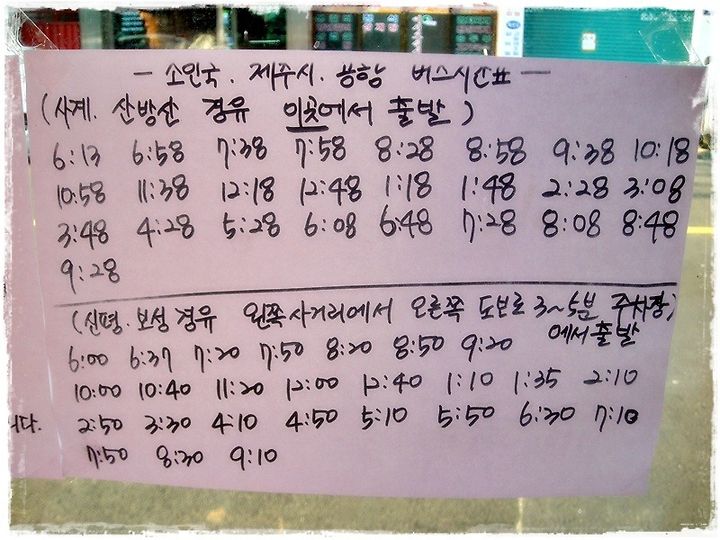 — 소인국. 제주시. 공항 버스시간표 —
(사계. 산방산 경유 이곳에서 출발)
6:13 6:58 7:38 7:58 8:28 8:58 9:38 10:18
10:58 11:38 12:18 12:48 1:18 1:48 2:28 3:08
3:48 4:28 5:28 6:08 6:48 7:28 8:08 8:48
9:28
(신평. 보성 경유 왼쪽 사거리에서 오른쪽 도보로 3~5분 주차장)
에서 출발
6:00 6:37 7:20 7:50 8:20 8:50 9:20
10:00 10:40 11:20 12:00 12:40 1:10 1:35 2:10
2:50 3:30 4:10 4:50 5:10 5:50 6:30 7:10
7:50 8:30 9:10
니다.